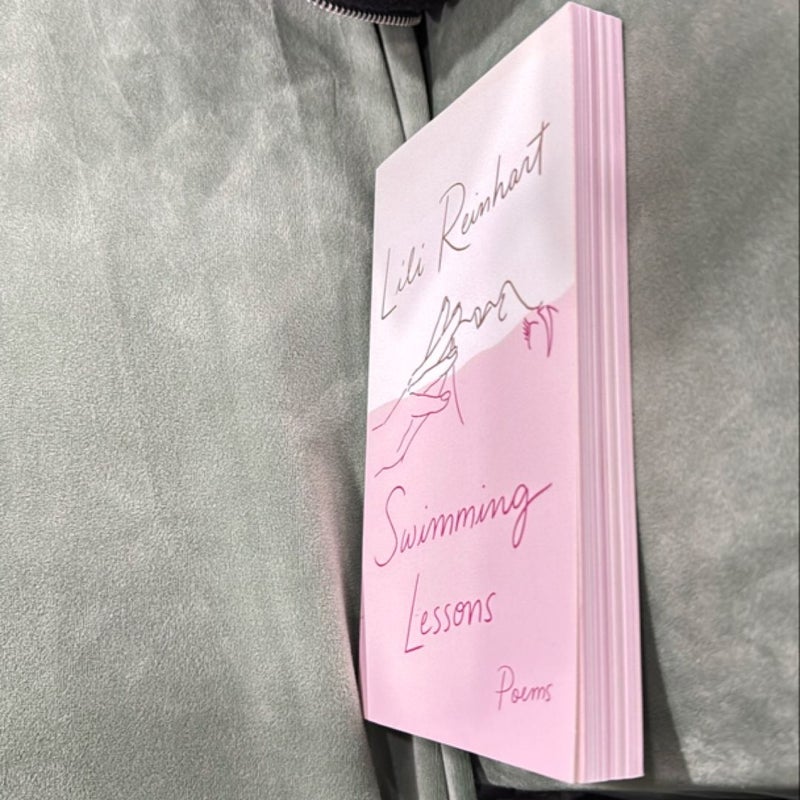 Lili Reinhart
Swimming
Lessons
Poems